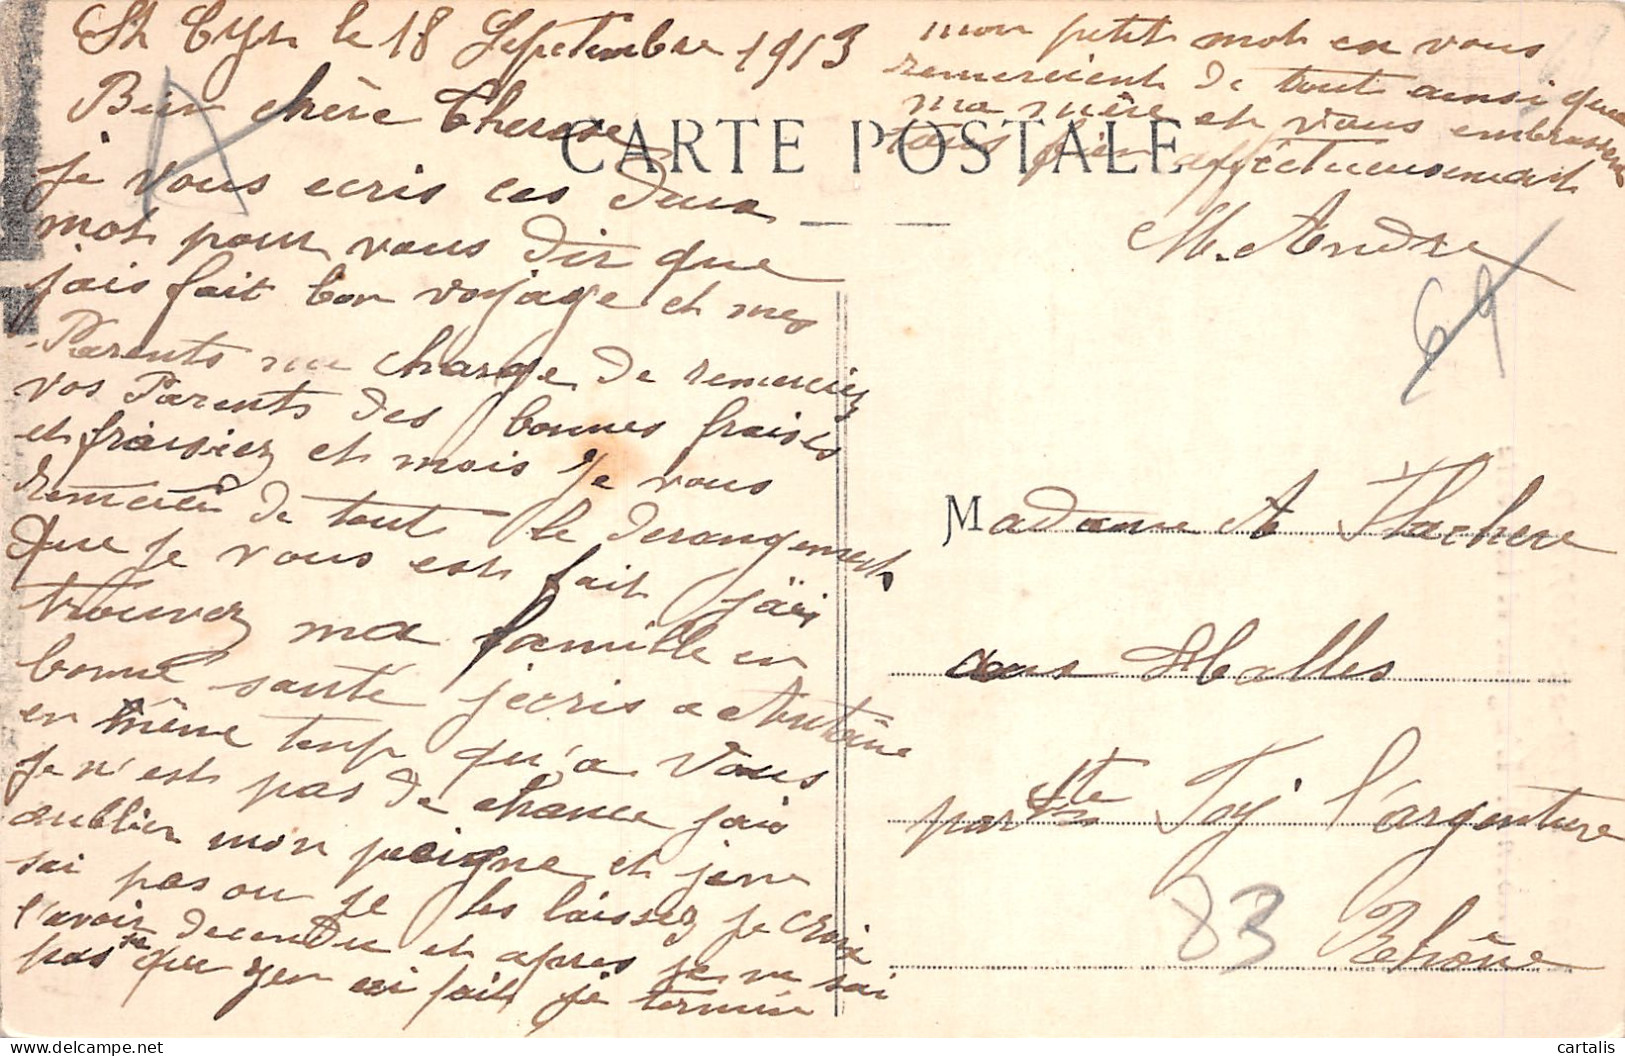 St Cyr le 18 Septembre 1913
Bien chère Therese
je vous ecris ces deux
mot pour vous dir que
jais fait bon voyage et mes
Parents me charge de remerciez
vos Parents des bonnes fraises
et fraisiez et mois Je vous
remercie de tout le derangement
Que je vous est fait jäi
trouvez ma famille en
bonne santé jecris a Antoine
en même temp qu'a Vous
Je n'est pas de chance jais
oublier mon peigne et jene
sai pas ou je les laissez je croix
l'avoir decendu et apres je ne sai
pas se que gen ai fait je termine
mon petit mot en vous
remercient de tout ainsi que
ma mère et vous embrassent
tous bien affectueusement
M. Andre
CARTE POSTALE
69
Madame A Flachere
aux Halles
par Ste Foy l'argentiere
83
Rhône
cartalis